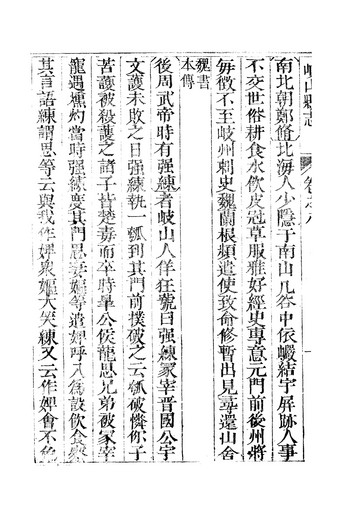 岐山縣志 卷之八
南北朝鄭脩北海人少隱于南山几谷中依巖結宇屏跡人事
不交世俗耕食水飲皮冠草服雅好經史專意元門前後州將
每徵不至岐州刺史魏蘭根頻遣使致命修暫出見尋還山舍
魏書
本傳
後周武帝時有强練者岐山人佯狂號曰强練冢宰晋國公宇
文護未敗之日强練執一瓠到其門前撲破之云瓠破憐你子
苦護被殺護之諸子皆楚毒而卒時皐公侯龍思兄弟被冢宰
龍遇燻灼當時强練度其門思妻嫗等遣婢呼入爲設飲食衆
其言語練謂思等云與我作婢衆嫗大笑練又云作婢會不免